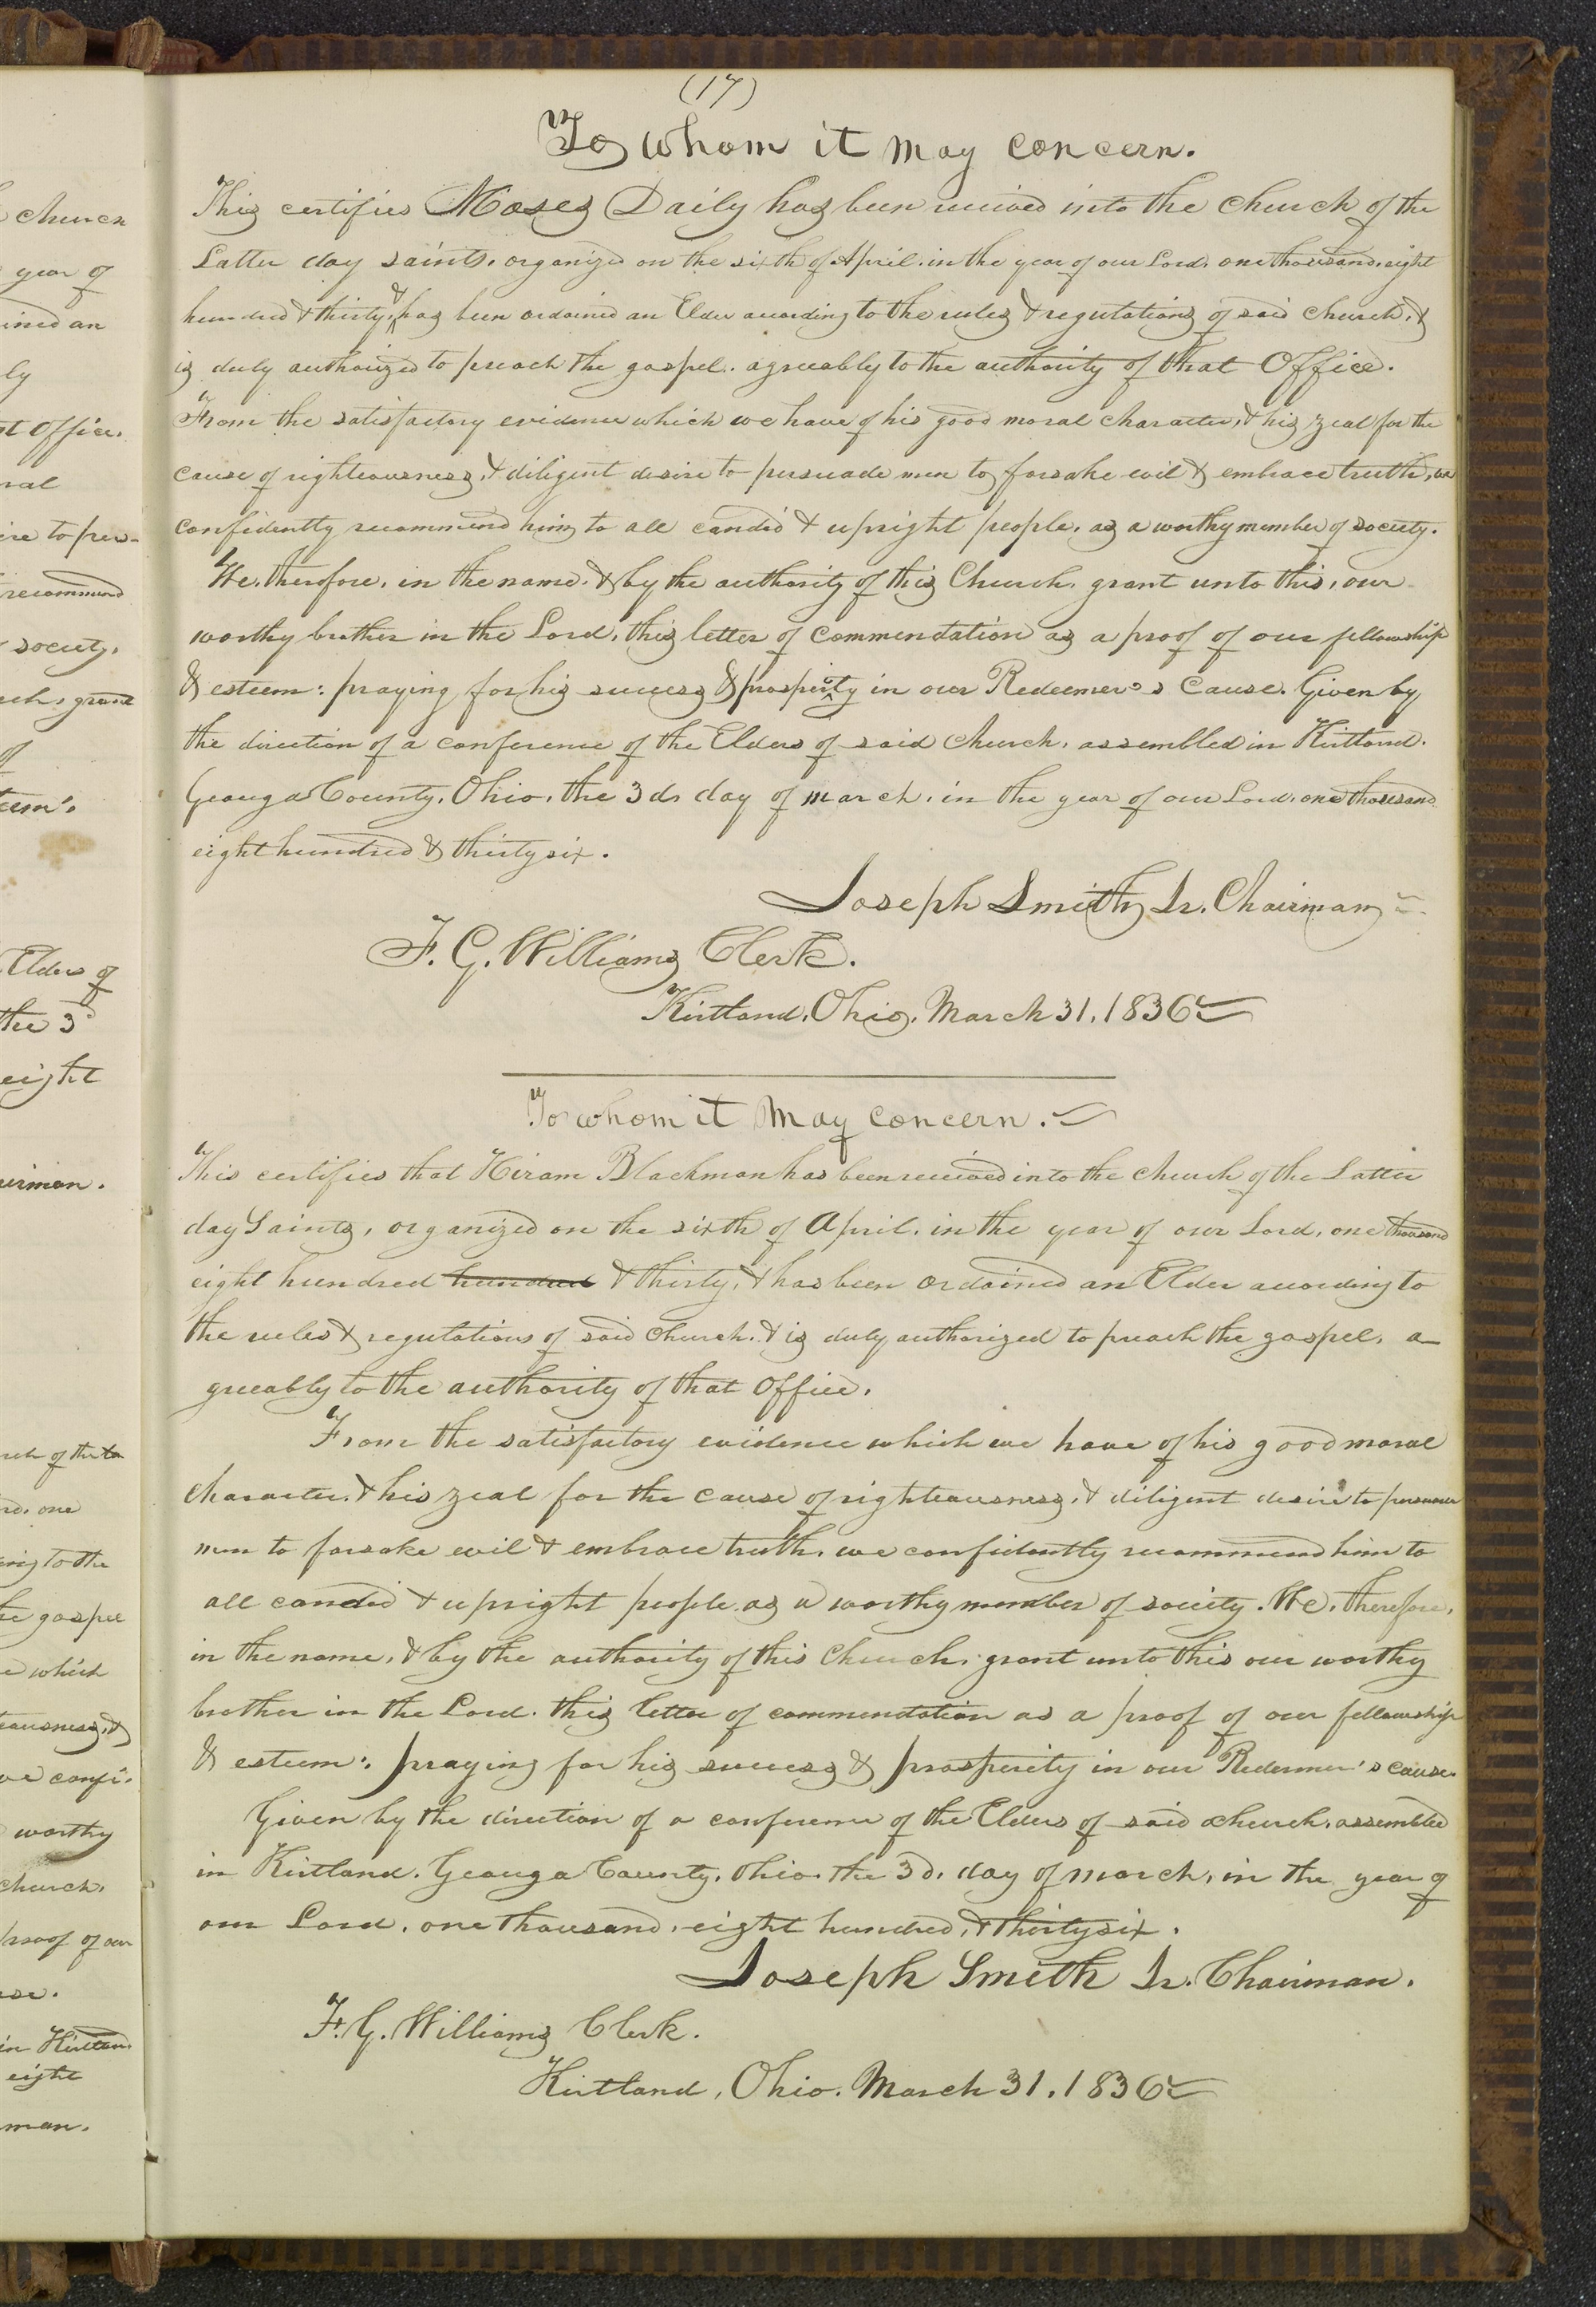 (17)
To whom it may concern.
This certifies Moses Daily has been received into the church of the
Latter day saints, organized on the sixth of April, in the year of our Lord, one thousand, eight
hundred & thirty, & has been ordained an Elder according to the rules & regulations of said church, &
is duly authorized to preach the gospel, agreeably to the authority of that Office.
From the satisfactory evidence which we have of his good moral character, & his zeal for the
cause of righteousness, & diligent desire to persuade men to forsake evil & embrace truth, we
confidently recommend him to all candid & upright people, as a worthy member of society.
We, therefore, in the name, & by the authority of this Church, grant unto this, our
worthy brother in the Lord, this letter of commendation as a proof of our fellowship
& esteem: praying for his success & prosperity in our Redeemer's Cause. Given by
the direction of a conference of the Elders of said church, assembled in Kirtland,
Geauga County, Ohio, the 3d. day of march, in the year of our Lord, one thousand
eight hundred & thirty six.
Joseph Smith Jr. Chairman
F. G. Williams Clerk.
Kirtland, Ohio, March 31, 1836
To whom it may concern.
This certifies that Hiram Blackman has been received into the church of the Latter
day Saints, organized on the sixth of April, in the year of our Lord, one thousand
eight hundred hundred & thirty, & has been ordained an Elder according to
the rules & regulations of said church, & is duly authorized to preach the gospel, a-
greeably to the authority of that Office.
From the satisfactory evidence which we have of his good moral
character, & his zeal for the cause of righteousness, & diligent desire to persuade
men to forsake evil & embrace truth, we confidently recommend him to
all candid & upright people as a worthy member of society. We, therefore,
in the name, & by the authority of this Church, grant unto this our worthy
brother in the Lord, this letter of commendation as a proof of our fellowship
& esteem: praying for his success & prosperity in our Redeemer's cause.
Given by the direction of a conference of the Elders of said church, assembled
in Kirtland, Geauga County, Ohio, the 3d. day of march, in the year of
our Lord, one thousand, eight hundred, & thirty six.
Joseph Smith Jr. Chairman.
F. G. Williams Clerk.
Kirtland, Ohio. March 31, 1836
church
year of
ly
Office.
recommend
society,
of
Elders of
the 3d
eight
one
to the
gospel
which
worthy
church,
proof of our
in Kirtland
eight